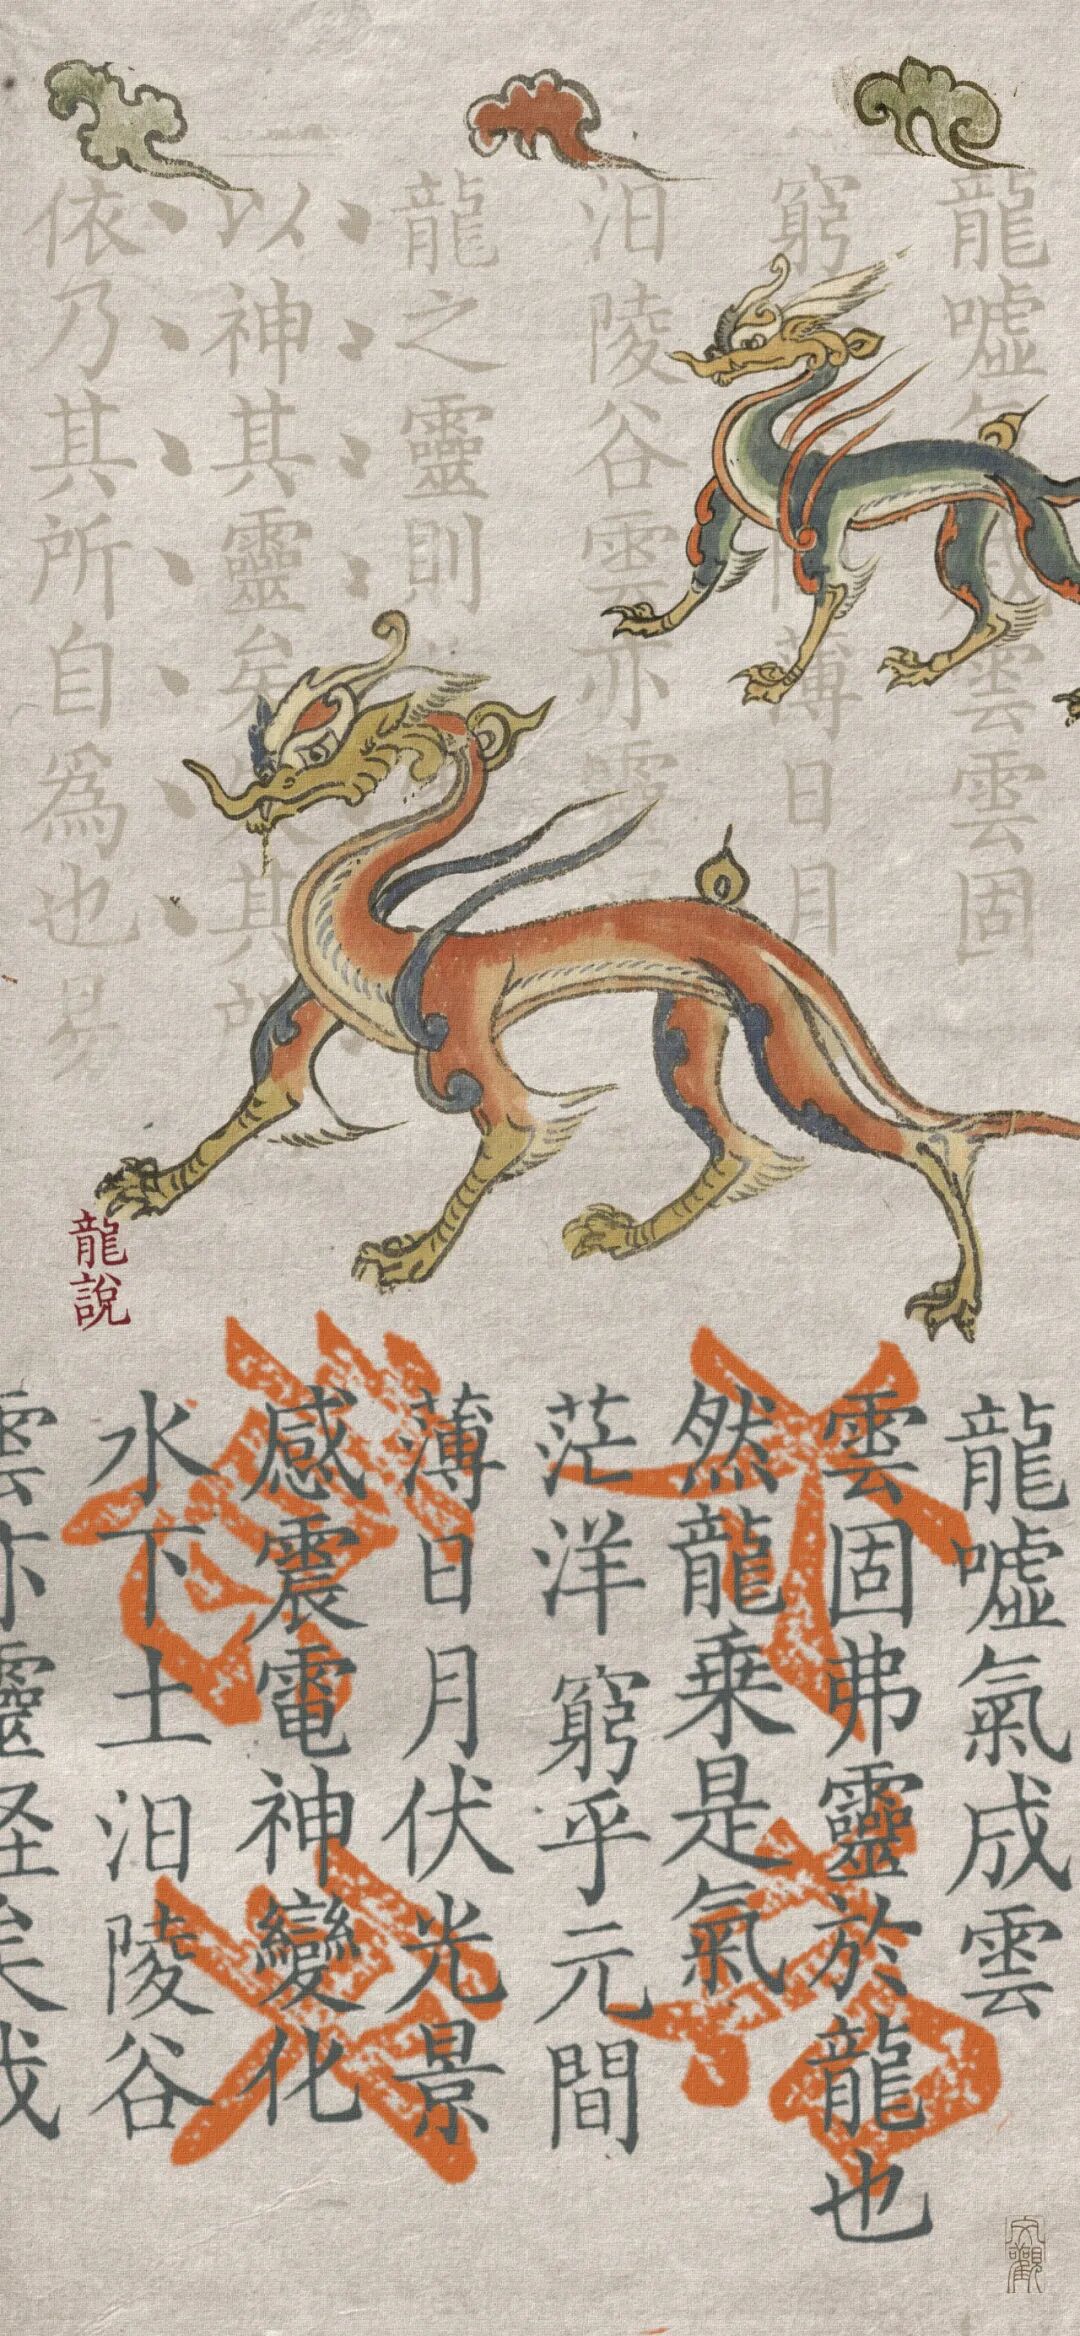 龍噓氣成雲雲固
窮薄日月
汩陵谷雲亦靈
龍之靈則
以神其靈矣失其所
依乃其所自為也易
龍說
龍噓氣成雲
雲固弗靈於龍也
然龍乘是氣
茫洋窮乎元間
薄日月伏光景
感震電神變化
水下土汩陵谷
雲亦靈怪矣哉
文觀